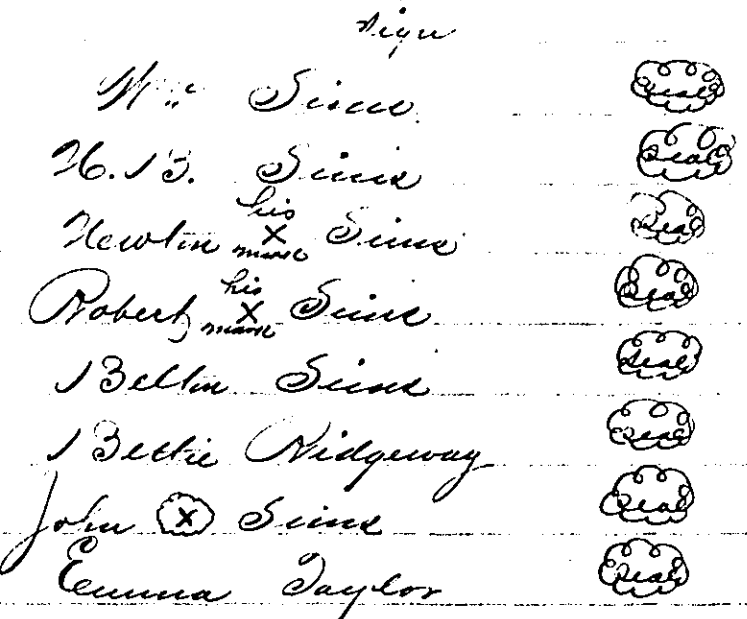 sign
Wm Sims Seal
H.B. Sims Seal
Newton his X mark Sims Seal
Robert his X mark Sims Seal
Sims Seal
Bettie Ridgeway Seal
John X Sims Seal
Emma Taylor Seal